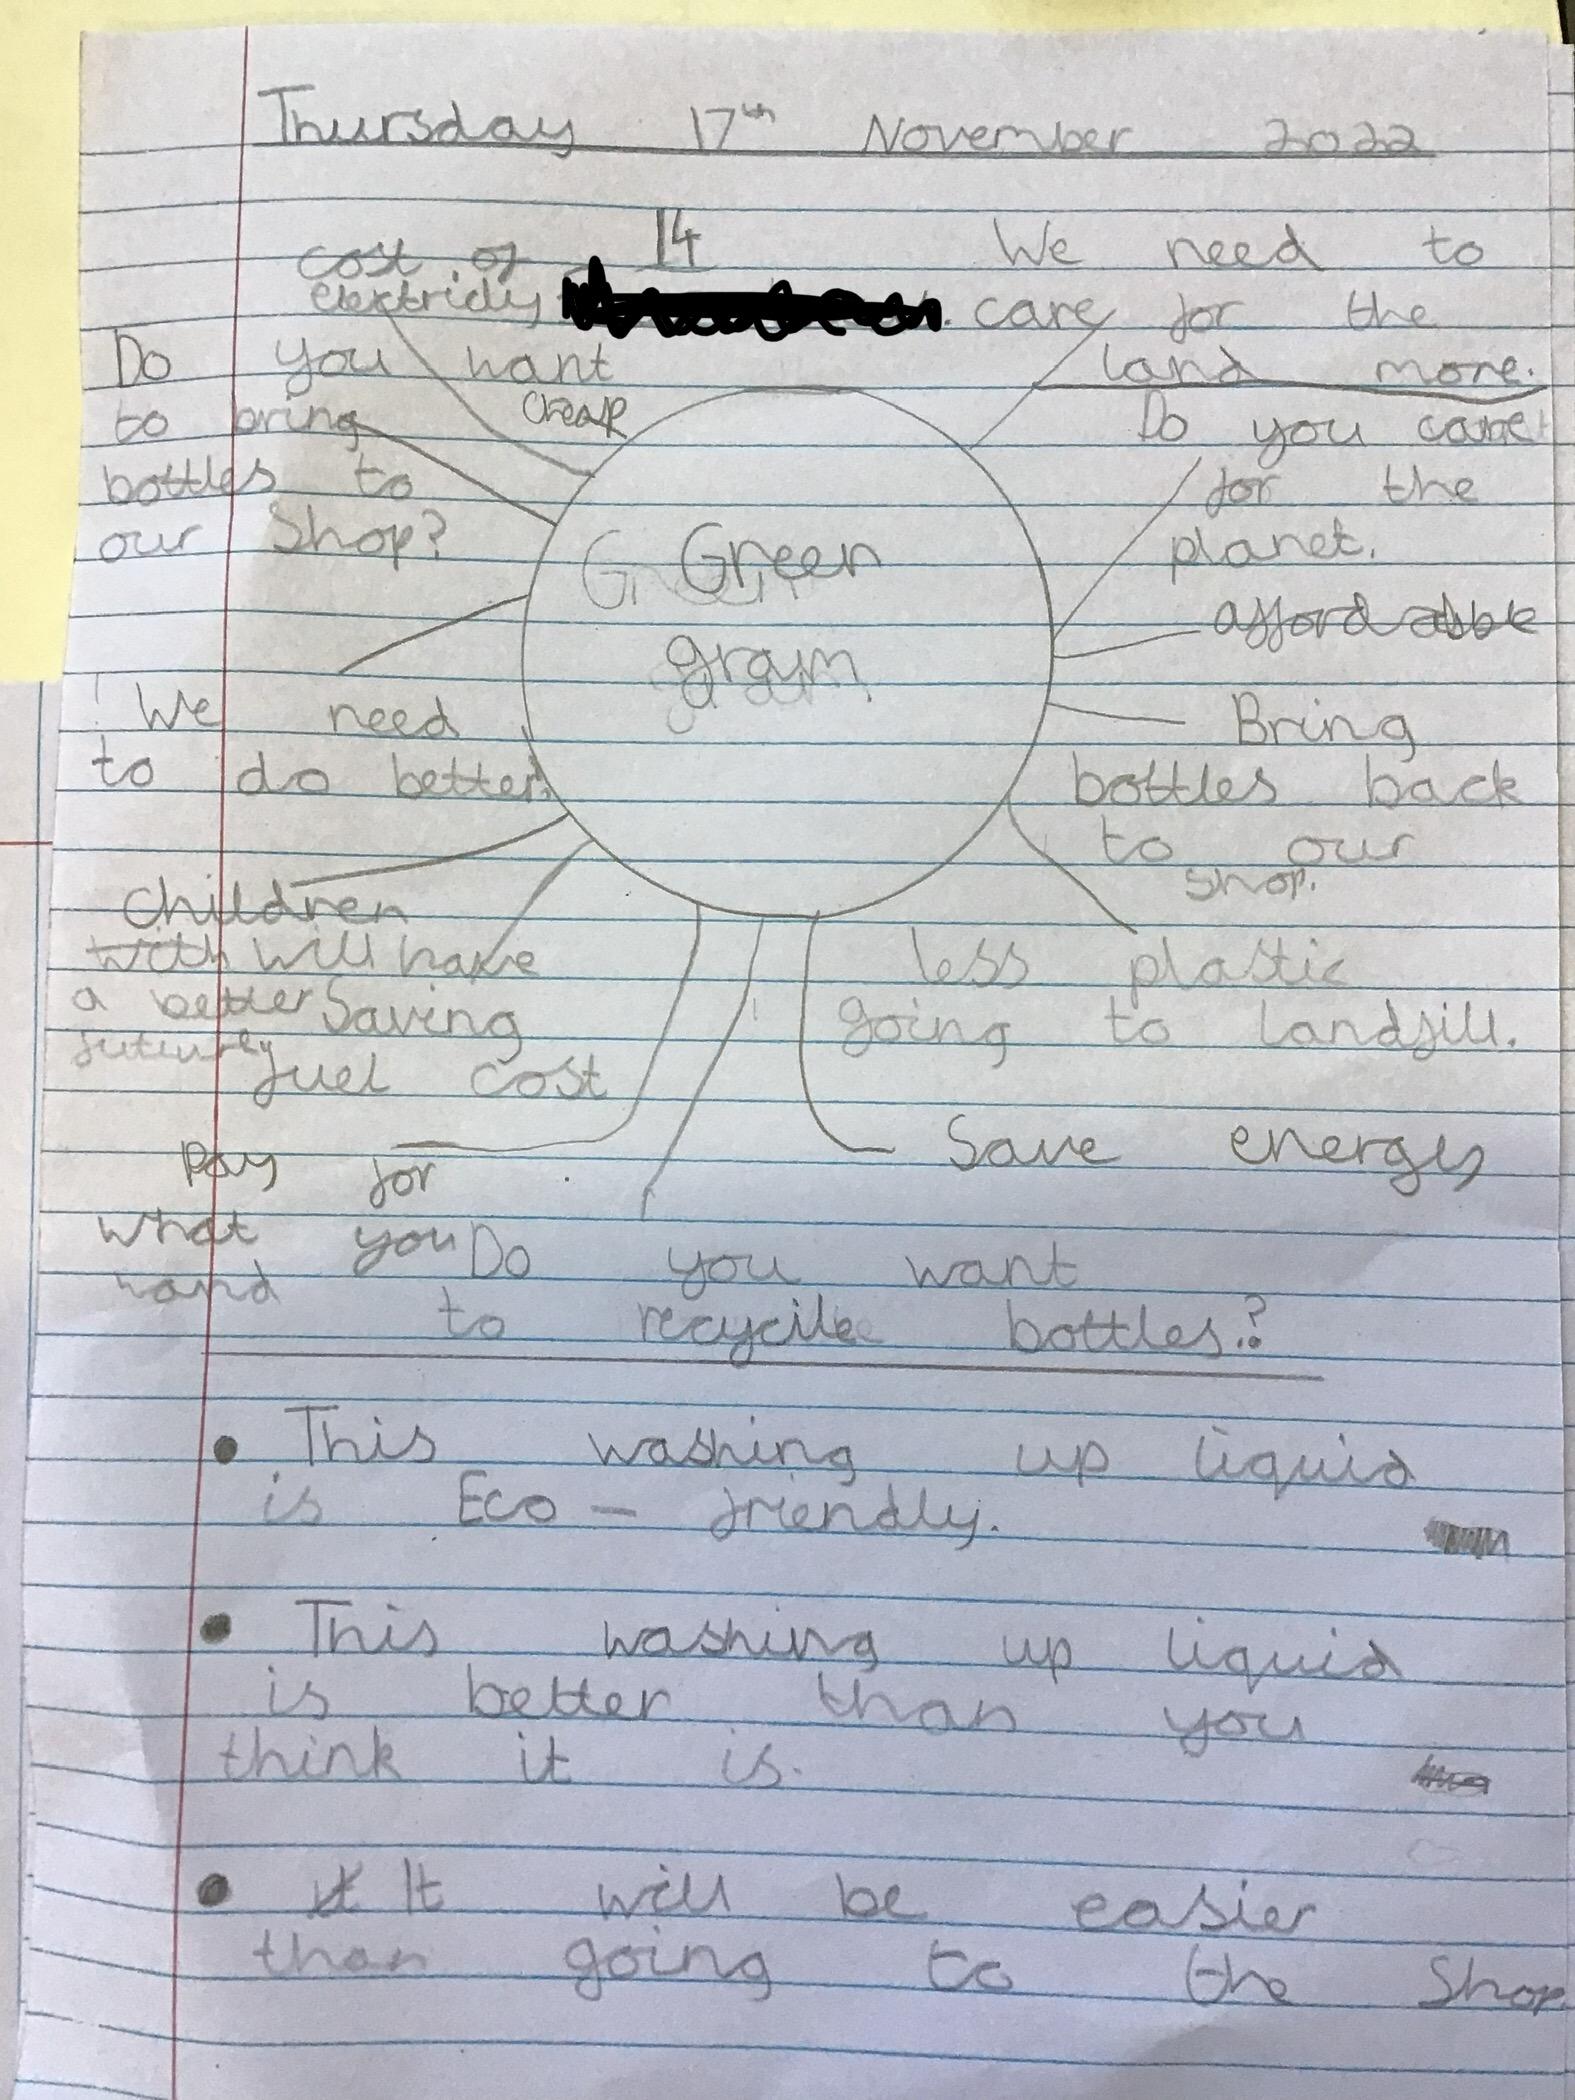 Thursday 17th November 2022
14
cost of
electridy
We need to
care for the
land more.
Do you want
to bring
bottles to
our Shop?
cheap
Do you care
for the
planet.
affordable
Green
gram
We need
to do better.
Bring
bottles back
to our
shop.
Children
will have
a better
Saving
fuel cost
less plastic
going to landfill.
Save energy
Pay for
what you
Do you want
to recycile bottles?
• This washing up liquid
is Eco - friendly.
• This washing up liquid
is better than you
think it is.
• It will be easier
than going to the Shop